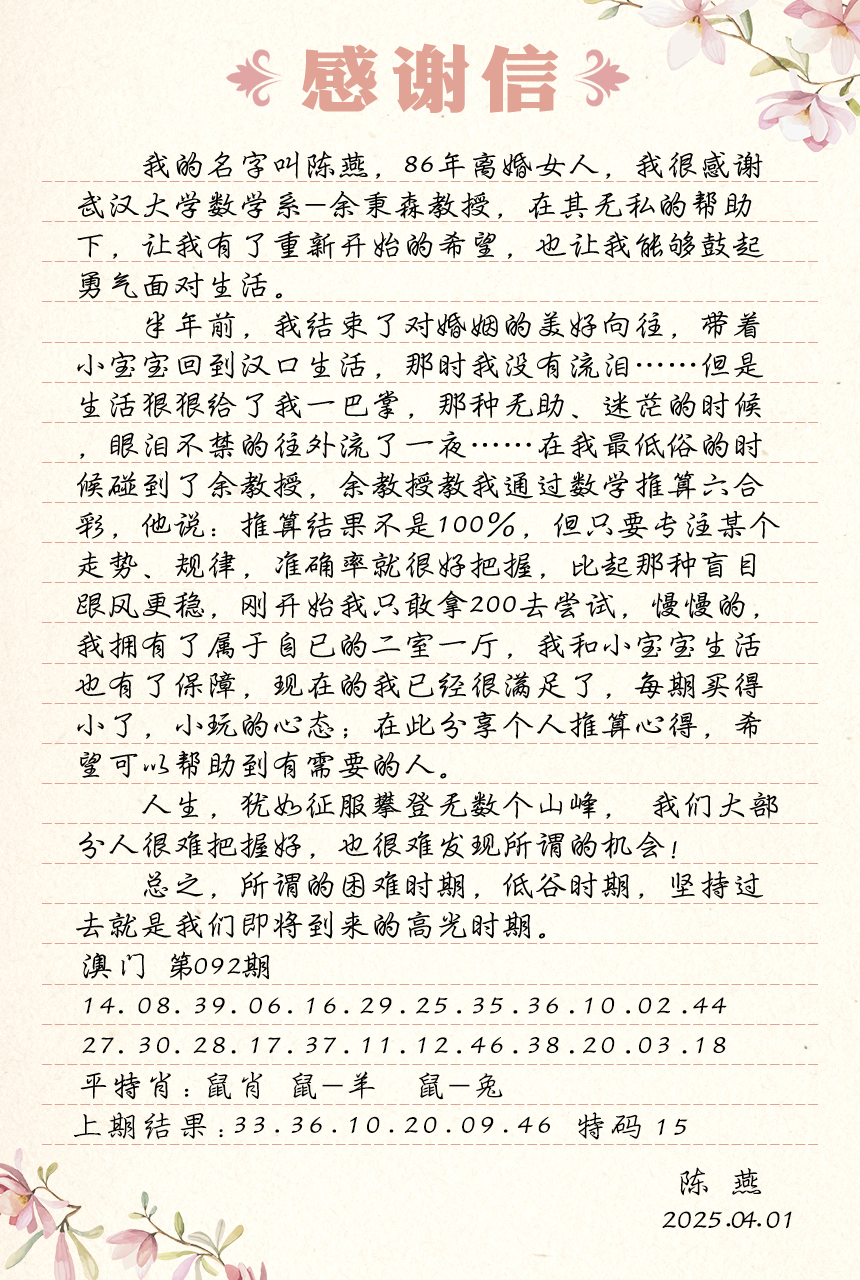 感谢信
我的名字叫陈燕，86年离婚女人，我很感谢
武汉大学数学系—余秉森教授，在其无私的帮助
下，让我有了重新开始的希望，也让我能够鼓起
勇气面对生活。
半年前，我结束了对婚姻的美好向往，带着
小宝宝回到汉口生活，那时我没有流泪……但是
生活狠狠给了我一巴掌，那种无助、迷茫的时候
，眼泪不禁的往外流了一夜……在我最低俗的时
候碰到了余教授，余教授教我通过数学推算六合
彩，他说：推算结果不是100%，但只要专注某个
走势、规律，准确率就很好把握，比起那种盲目
跟风更稳，刚开始我只敢拿200去尝试，慢慢的，
我拥有了属于自已的二室一厅，我和小宝宝生活
也有了保障，现在的我已经很满足了，每期买得
小了，小玩的心态；在此分享个人推算心得，希
望可以帮助到有需要的人。
人生，犹如征服攀登无数个山峰， 我们大部
分人很难把握好，也很难发现所谓的机会！
总之，所谓的困难时期，低谷时期，坚持过
去就是我们即将到来的高光时期。
澳门 第092期
14.08.39.06.16.29.25.35.36.10.02.44
27.30.28.17.37.11.12.46.38.20.03.18
平特肖：鼠肖 鼠—羊 鼠—兔
上期结果：33.36.10.20.09.46 特码 15
陈 燕
2025.04.01